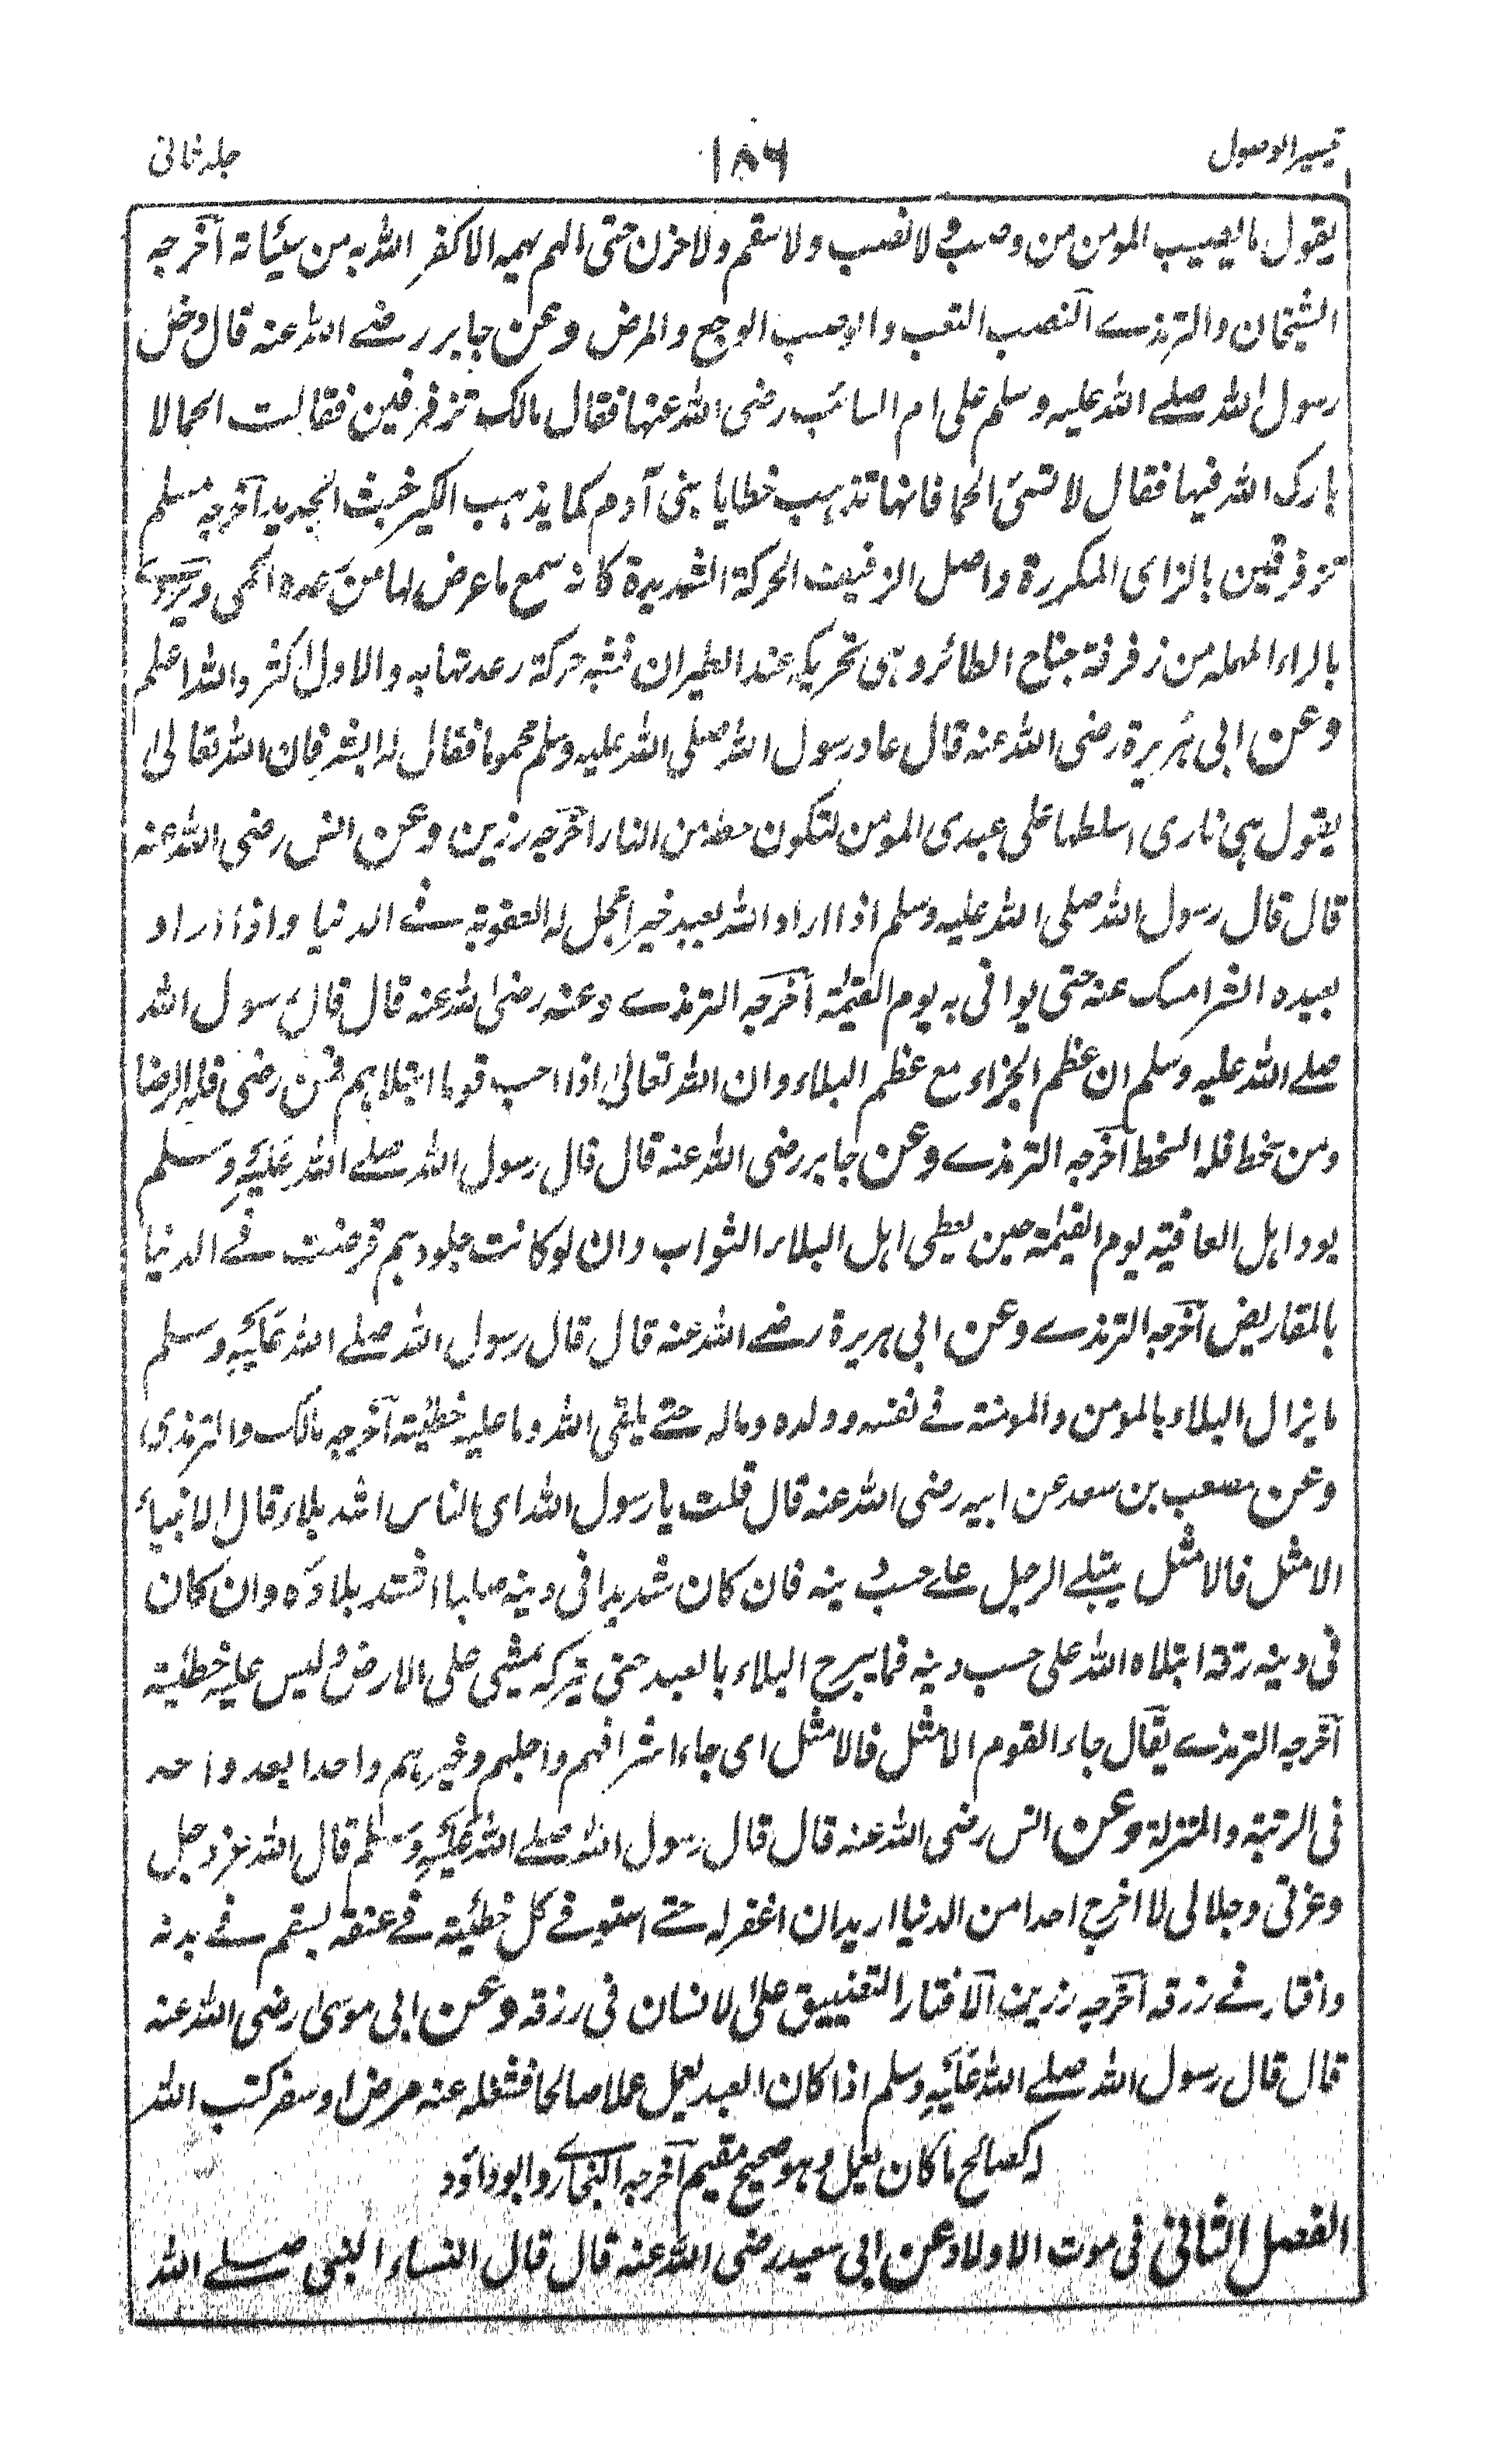 تيسير الوصول ١٨٦ جلد ثانى
يقول ما يصيب المومن من وصب ولا نصب ولا سقم ولا حزن حتى الهم يهمه الا كفر الله به من سيئاته آخرجه
الشيخان والترمذے آلنصب التعب والوصب الوجع والمرض وعن جابر رضے الله عنه قال دخل
رسول الله صلے الله عليه وسلم على ام السائب رضى الله عنها فقال مالك تزفزفين فقالت الحما لا
بارك الله فيها فقال لا تسبى الحما فانها تذهب خطايا بنى آدم كما يذهب الكير خبث الحديد آخرجه مسلم
تزفزفين بالزاى المكررة واصل الزفيف الحركة الشديدة كانه سمع ما عرض لها من رعدة الحمى ويروے
بالراء المهمله من زفرفة جناح الطائر وهى تحريكه عند الطيران فشبه حركة رعدتها به والاول اكثر والله اعلم
وعن ابى هريرة رضى الله عنه قال عاد رسول الله صلى الله عليه وسلم محموما فقال له ابشر فان الله تعالىٰ
يقول هى نارى اسلطها على عبدى المومن لتكون حظه من النار آخرجه رزين وعن انس رضى الله عنه
قال قال رسول الله صلى الله عليه وسلم اذا اراد الله بعبد خيرا عجل له العقوبة فے الدنيا واذا اراد
بعبده الشر امسك عنه حتى يوافى به يوم القيٰمة آخرجه الترمذے وعنه رضى الله عنه قال قال رسول الله
صلے الله عليه وسلم ان عظم الجزاء مع عظم البلاء وان الله تعالىٰ اذا احب قوما ابتلاهم فمن رضى فله الرضا
ومن سخط فله السخط آخرجه الترمذے وعن جابر رضى الله عنه قال قال رسول الله صلے الله عليه وسلم
يود اهل العافية يوم القيٰمة حين يعطى اهل البلاء الثواب وان لو كانت جلودهم قرضت فے الدنيا
بالمقاريض آخرجه الترمذے وعن ابى هريرة رضے الله عنه قال قال رسول الله صلے الله عليه وسلم
ما يزال البلاء بالمومن والمومنة فے نفسه وولده وماله حتے يلقى الله وما عليه خطيئة آخرجه مالك والترمذى
وعن مصعب بن سعد عن ابيه رضى الله عنه قال قلت يا رسول الله اى الناس اشد بلاء قال الانبياء
الامثل فالامثل يبتلے الرجل علے حسب دينه فان كان شديدا فى دينه صلبا اشتد بلاؤه وان كان
فى دينه رقة ابتلاه الله على حسب دينه فما يبرح البلاء بالعبد حتى يتركه يمشى على الارض وليس عليه خطيئة
آخرجه الترمذے يقال جاء القوم الامثل فالامثل اى جاء اشرافهم واجلهم وخيرهم واحدا بعد واحد
فى الرتبة والمنزلة وعن انس رضى الله عنه قال قال رسول الله صلے الله عليه وسلم قال الله عز وجل
وعزتى وجلالى لا اخرج احدا من الدنيا اريد ان اغفر له حتے استوفے كل خطيئة فے عنقه بسقم فے بدنه
واقتار فے رزقه آخرجه رزين آلاقتار التضييق على الانسان فى رزقه وعن ابى موسىٰ رضى الله عنه
قال قال رسول الله صلے الله عليه وسلم اذا كان العبد يعمل عملا صالحا فشغله عنه مرض او سفر كتب الله
له كصالح ما كان يعمل وهو صحيح مقيم آخرجه البخارے وابو داؤد
الفصل الثانى فى موت الاولاد وعن ابى سعيد رضى الله عنه قال قال النساء النبى صلے الله